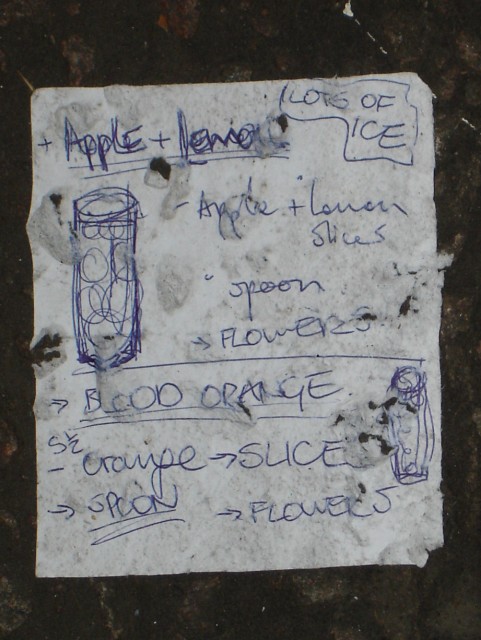 LOTS OF
ICE
+ Apple + lemon
- Apple + lemon
slices
spoon
→ FLOWERS
→ BLOOD ORANGE
- orange → SLICE
→ SPOON → FLOWERS